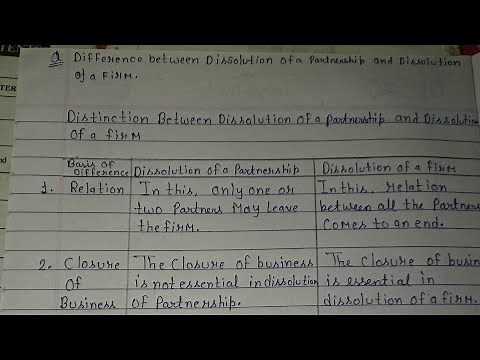 Q Difference between Dissolution of a Partnership and Dissolution
of a Firm.
Distinction Between Dissolution of a Partnership and Dissolution
of a firm
Basis of Difference Dissolution of a Partnership Dissolution of a firm
1. Relation In this, only one or In this, relation
two Partners May leave between all the Partners
the firm. Comes to an end.
2. Closure The Closure of business The Closure of busin
of is not essential in dissolution is essential in
Business of Partnership. dissolution of a firm.